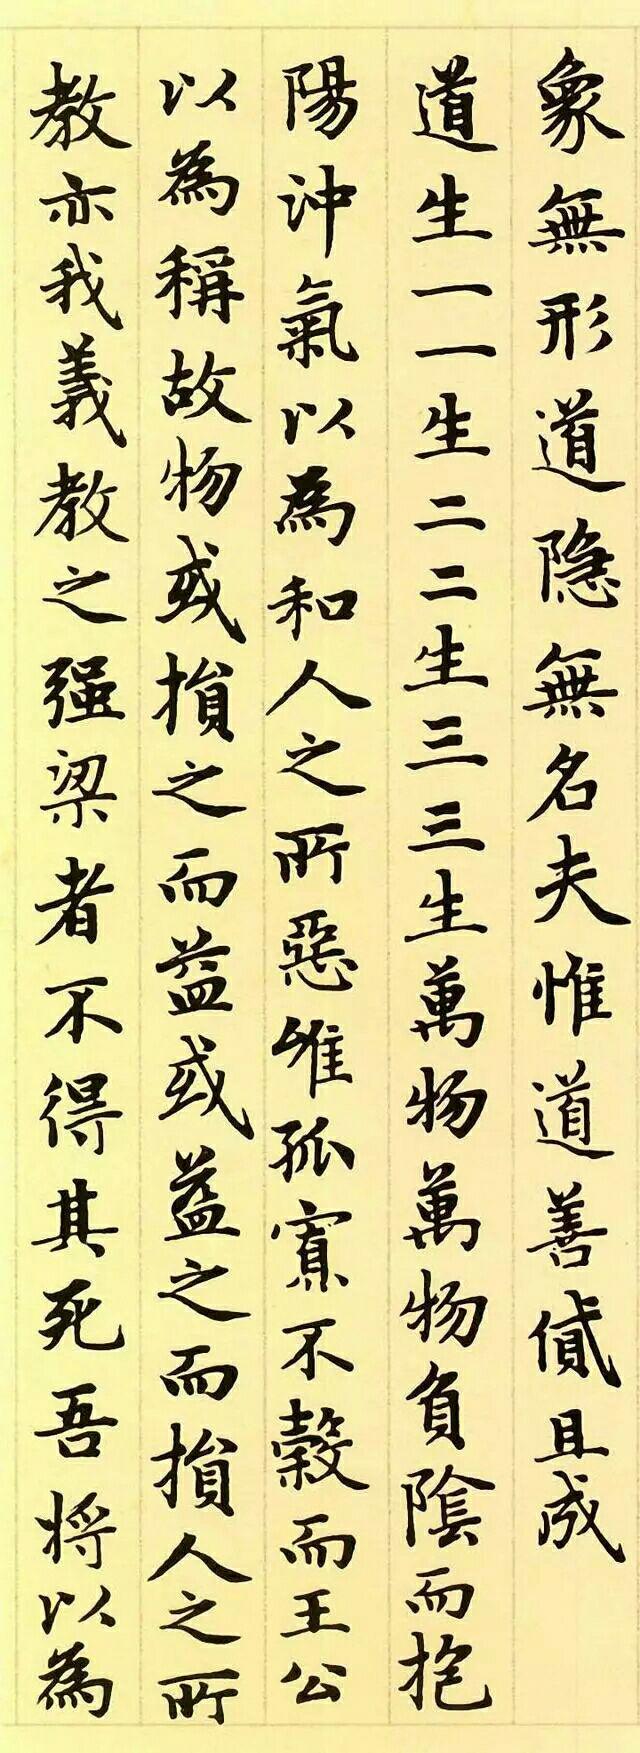 象無形道隐無名夫惟道善貸且成
道生一一生二二生三三生萬物萬物負陰而抱
陽沖氣以為和人之所惡唯孤寡不穀而王公
以為稱故物或損之而益或益之而損人之所
教亦我義教之强梁者不得其死吾将以為